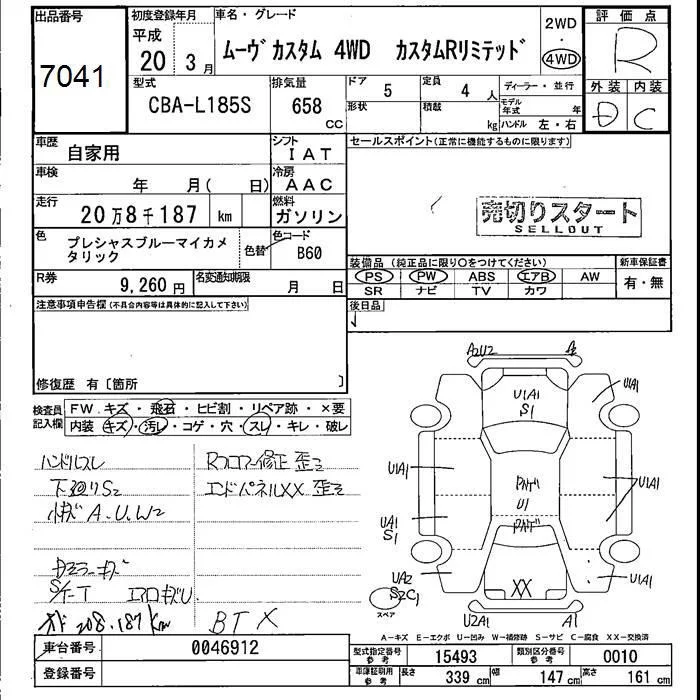 出品番号
7041
初度登録年月
平成
20 3月
車名・グレード
ムーヴ カスタム 4WD カスタムRリミテッド
2WD
・
4WD
評価点
R
外装 内装
D C
型式
CBA-L185S
排気量
658
CC
ドア 5
定員 4 人
形状
積載 kg
ディーラー・並行
モデル年式 年
ハンドル 左・右
車歴
自家用
シフト
IAT
車検
年 月( 日)
冷房
AAC
走行
20万8千187 km
燃料
ガソリン
色
プレシャスブルーマイカメタリック
色替
色コード
B60
R券
9,260 円
名変通知期限
月 日
セールスポイント(正常に機能するものに限ります)
売切りスタート
SELLOUT
装備品 (純正品に限り○をつけてください)
新車保証書
PS PW ABS エアB AW
SR ナビ TV カワ
有・無
後日品
注意事項申告欄(不具合内容等は具体的に記入して下さい)
修復歴 有〔箇所 〕
検査員記入欄
FW キズ・飛石・ヒビ割・リペア跡・×要
内装 キズ・汚レ・コゲ・穴・スレ・キレ・破レ
ハンドルスレ
下廻りS2
小キズ A.U.W2
S/T-T エアロキズU
メーター 208.187km
Rフロアー修正 歪ミ
エンドパネルXX 歪ミ
BT X
A2U2
U1A1
S1
U1A1
U1A1
U1A1
UA1
S1
U1
XX
UA2
S2C1
U1A1
U2A1
A1
スペア
A-キズ E-エクボ U-凹み W-補修跡 S-サビ C-腐食 XX-交換済
車台番号
0046912
登録番号
型式指定番号 参考
15493
類別区分番号 参考
0010
車庫証明用 参考
長さ 339 cm
幅 147 cm
高さ 161 cm